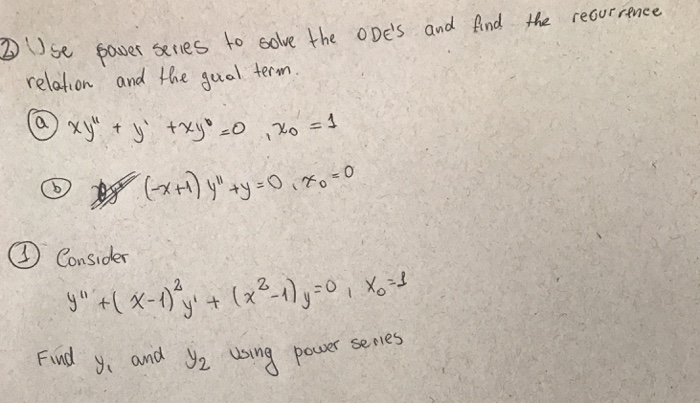 ② Use power series to solve the ODE's and find the recurrence
relation and the gueal term.
ⓐ xy" + y' + xy = 0 , x₀ = 1
ⓑ (-x+1) y" + y = 0 , x₀ = 0
① Consider
y" + (x-1)² y' + (x²-1) y = 0 , x₀ = 1
Find y₁ and y₂ using power series